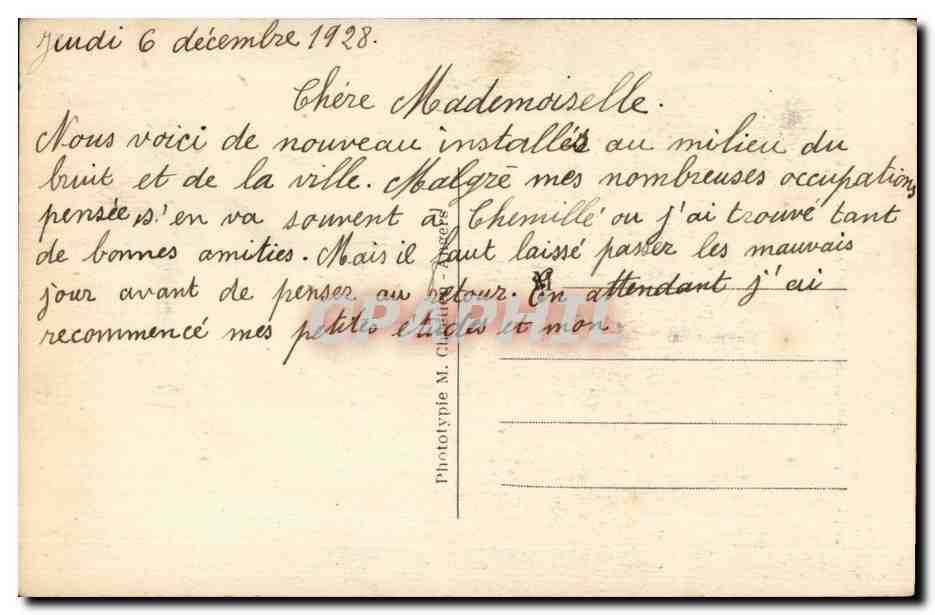 Jeudi 6 décembre 1928.
Chére Mademoiselle.
Nous voici de nouveau installés au milieu du
bruit et de la ville. Malgré mes nombreuses occupations
pensée s'en va souvent à Chemillé ou j'ai trouvé tant
de bonnes amities. Mais il faut laissé passer les mauvais
jour avant de penser au retour. En attendant j'ai
recommencé mes petites etudes et mon
CPAPHIL
Phototypie M. - Angers